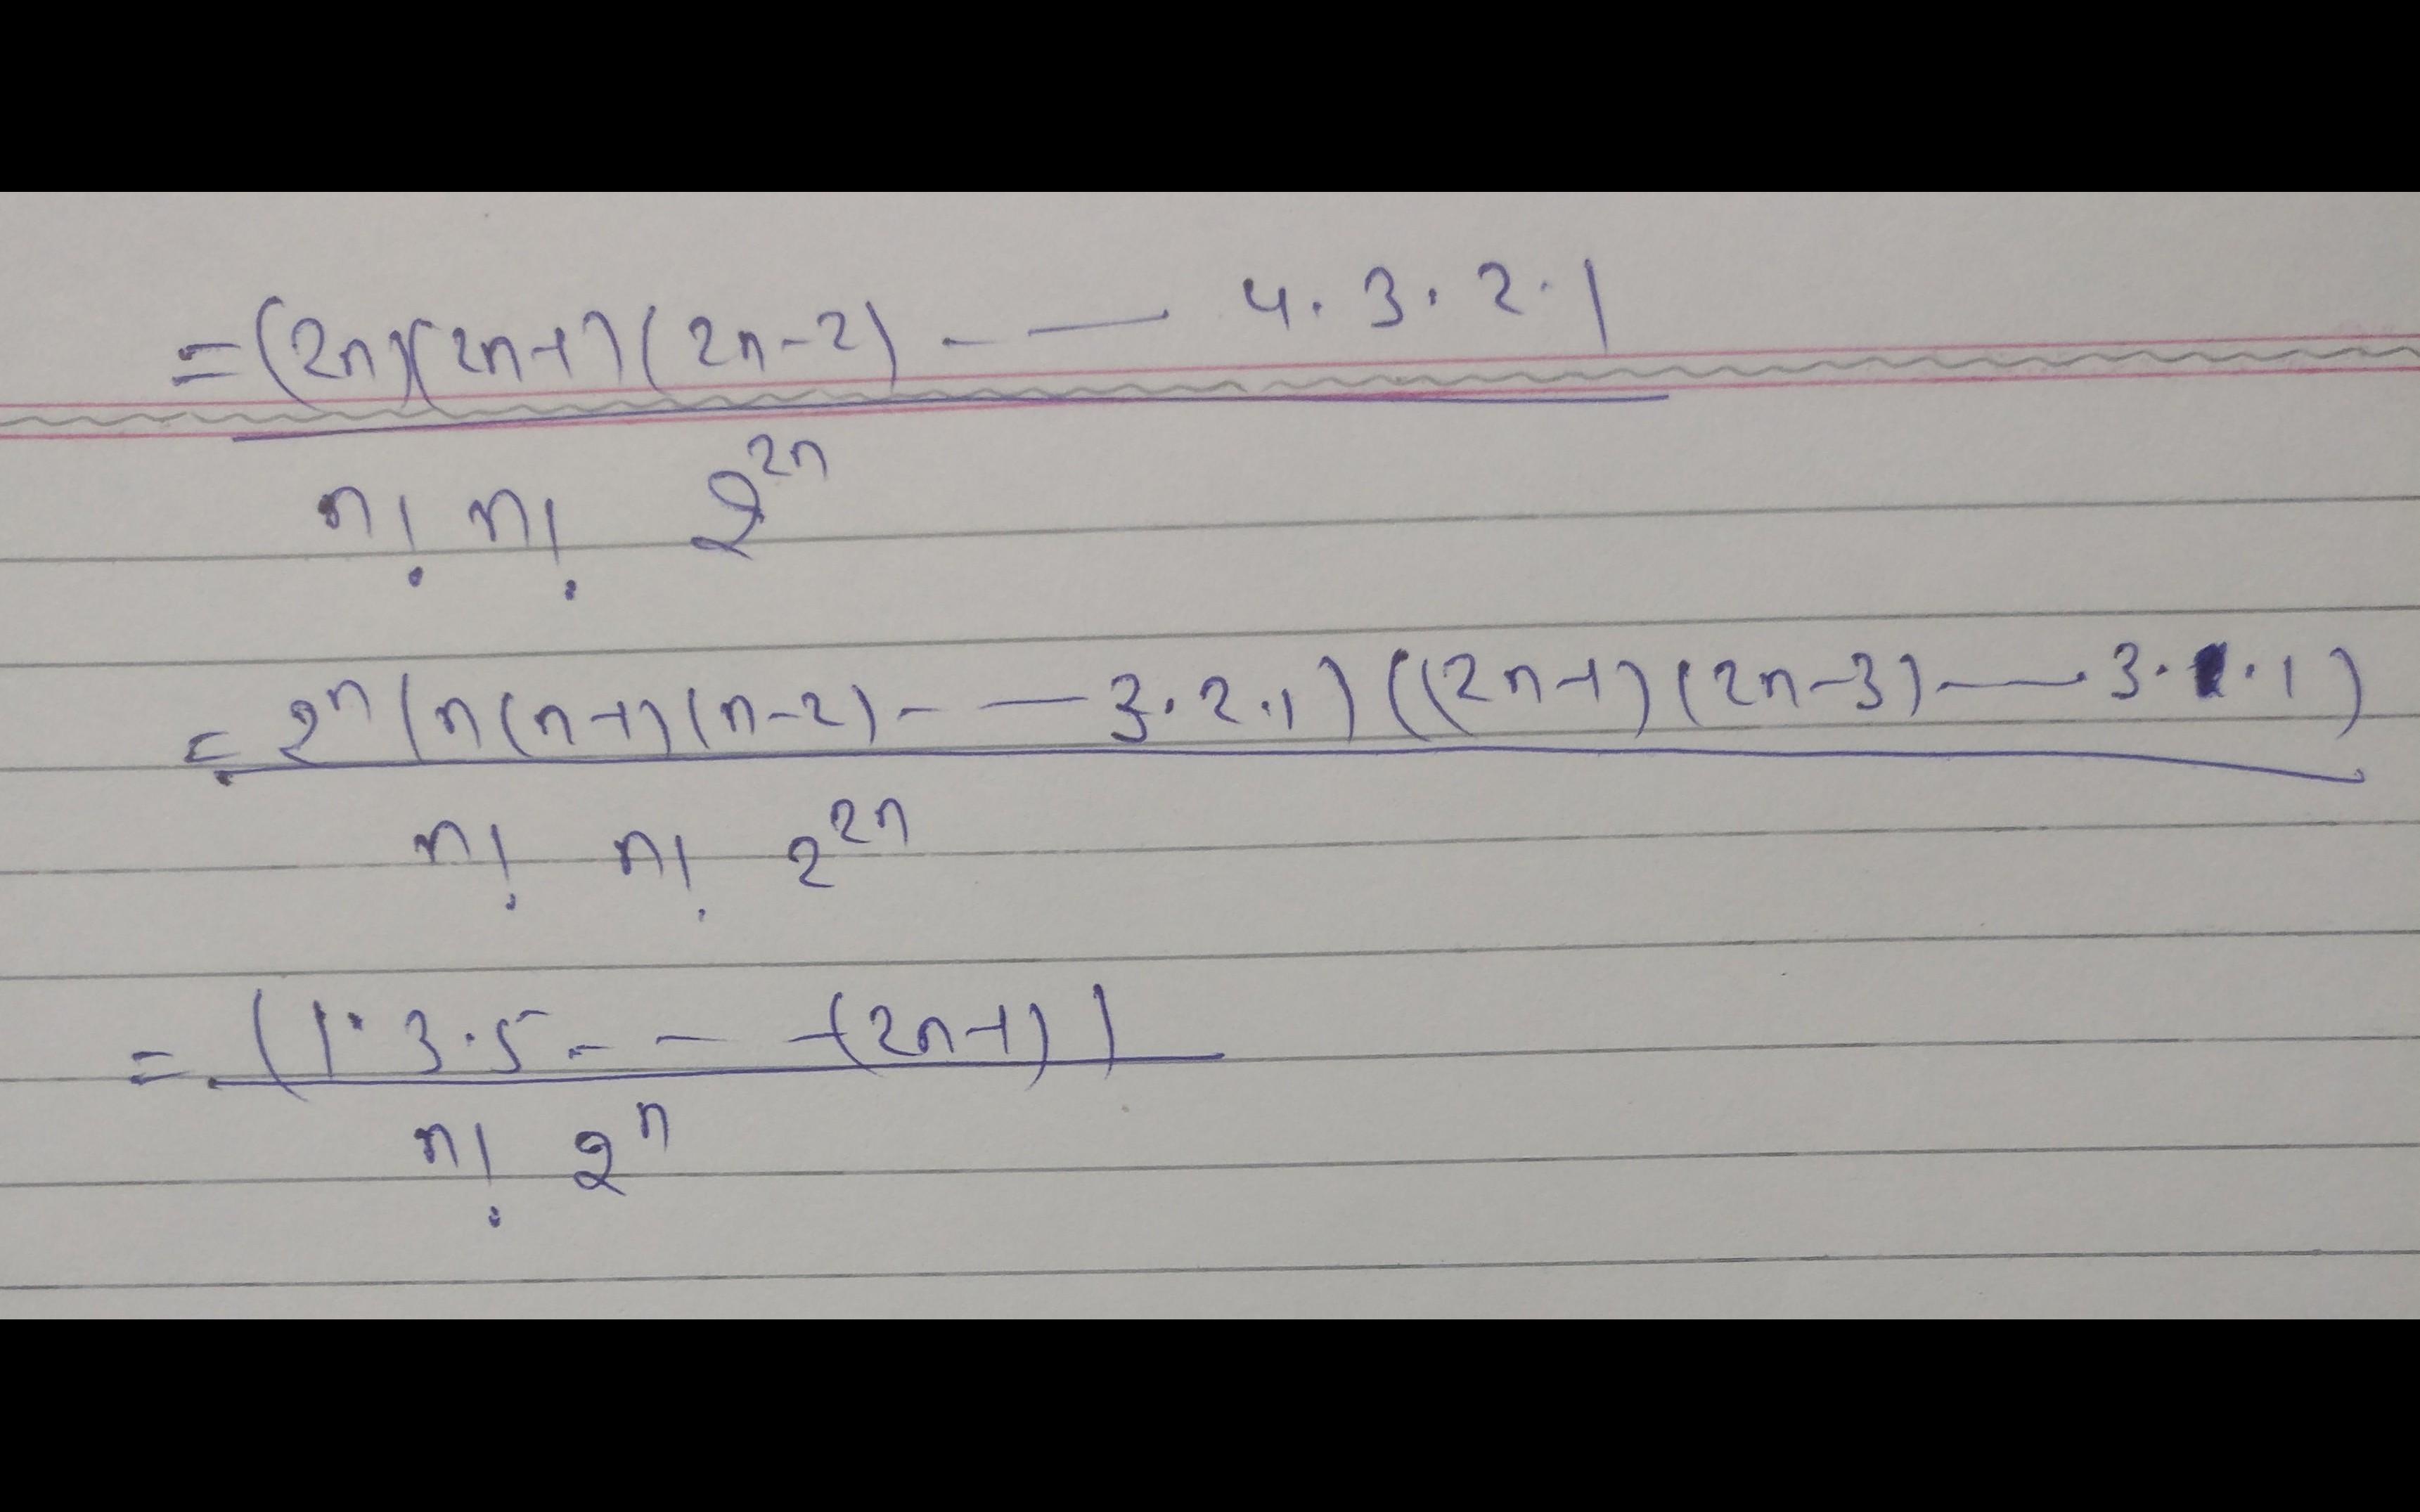 = (2n)(2n-1)(2n-2) - — 4. 3. 2. 1
n! n! 2^2n
= 2^n (n(n-1)(n-2) - — 3.2.1) ((2n-1)(2n-3) — 3. . 1)
n! n! 2^2n
= (1.3.5 - - -(2n-1))
n! 2^n